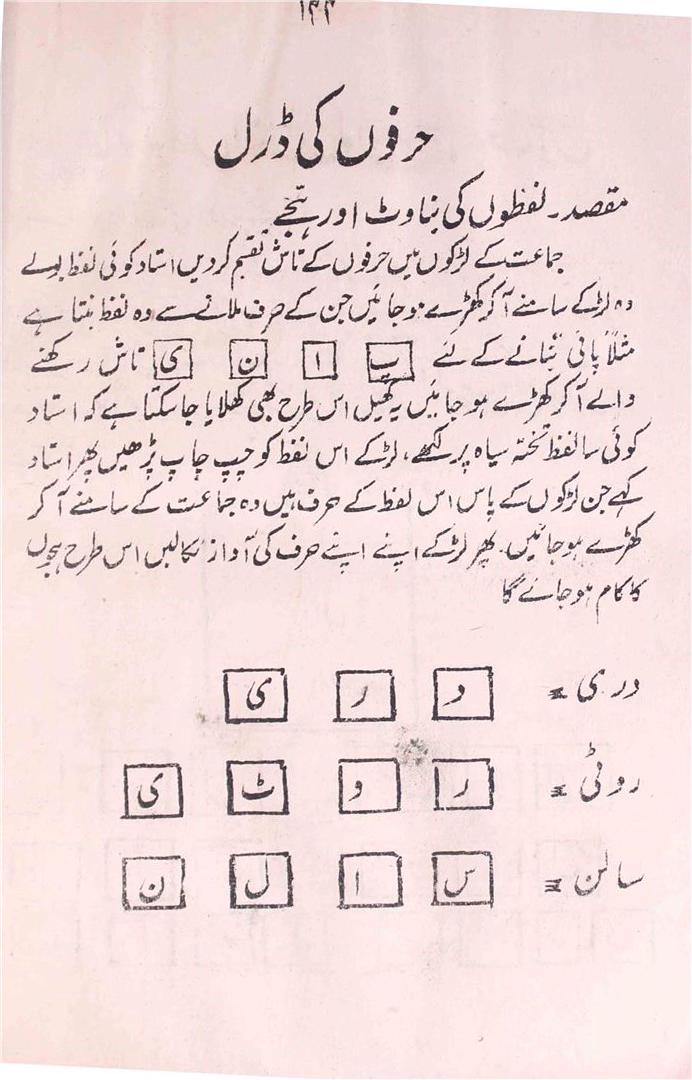 ۱۴۴
حرفوں کی ڈرل
مقصد۔ لفظوں کی بناوٹ اور ہجے
جماعت کے لڑکوں میں حرفوں کے تاش تقسیم کر دیں استاد کوئی لفظ بولے
وہ لڑکے سامنے آکر کھڑے ہو جائیں جن کے حرف ملانے سے وہ لفظ بنتا ہے
مثلاً پانی بنانے کے لئے پ ا ن ی تاش رکھنے
والے آکر کھڑے ہو جائیں یہ کھیل اس طرح بھی کھلایا جا سکتا ہے کہ استاد
کوئی سا لفظ تختہ سیاہ پر لکھے، لڑکے اس لفظ کو چپ چاپ پڑھیں پھر استاد
کہے جن لڑکوں کے پاس اس لفظ کے حرف ہیں وہ جماعت کے سامنے آکر
کھڑے ہو جائیں۔ پھر لڑکے اپنے اپنے حرف کی آواز نکالیں اس طرح ہجوں
کا کام ہو جائے گا
دری = د ر ی
روٹی = ر و ٹ ی
سالن = س ا ل ن